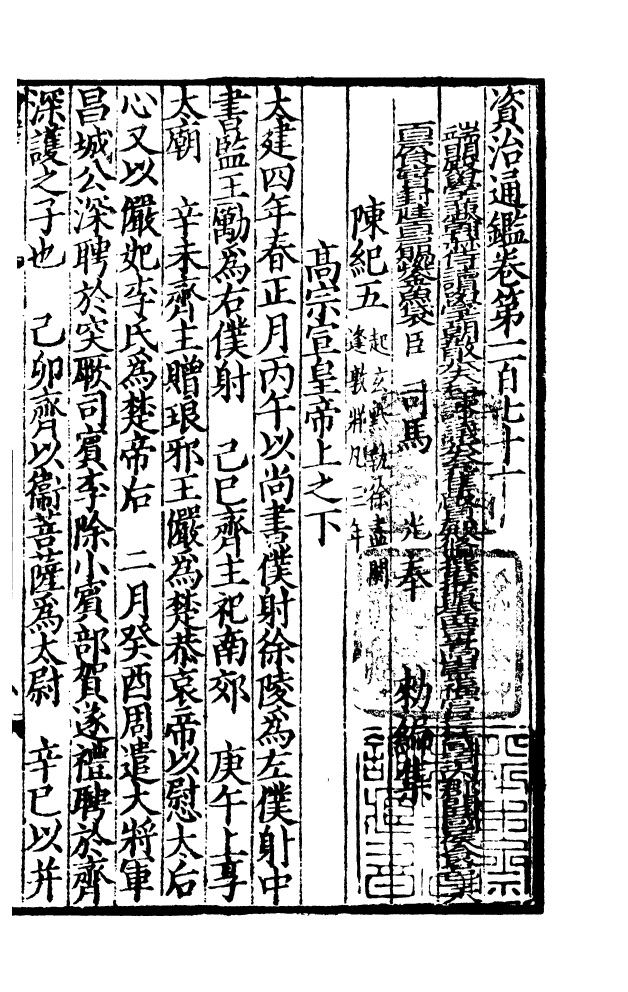 資治通鑑卷第一百七十一
端明殿學士兼翰林侍讀學士朝散大夫右諫議大夫充集賢殿
紫金魚袋臣 司馬 光 奉 勑編集
陳紀五 起玄黓執徐盡閼
逢敦牂凡三年
高宗宣皇帝上之下
太建四年春正月丙午以尚書僕射徐陵為左僕射中
書監王勱為右僕射 己巳齊主祀南郊 庚午上享
太廟 辛未齊主贈琅邪王儼為楚恭哀帝以慰太后
心又以儼妃李氏為楚帝后 二月癸酉周遣大將軍
昌城公深聘於突厥司賓李除小賓部賀遂禮聘於齊
深護之子也 己卯齊以衛菩薩為太尉 辛巳以并